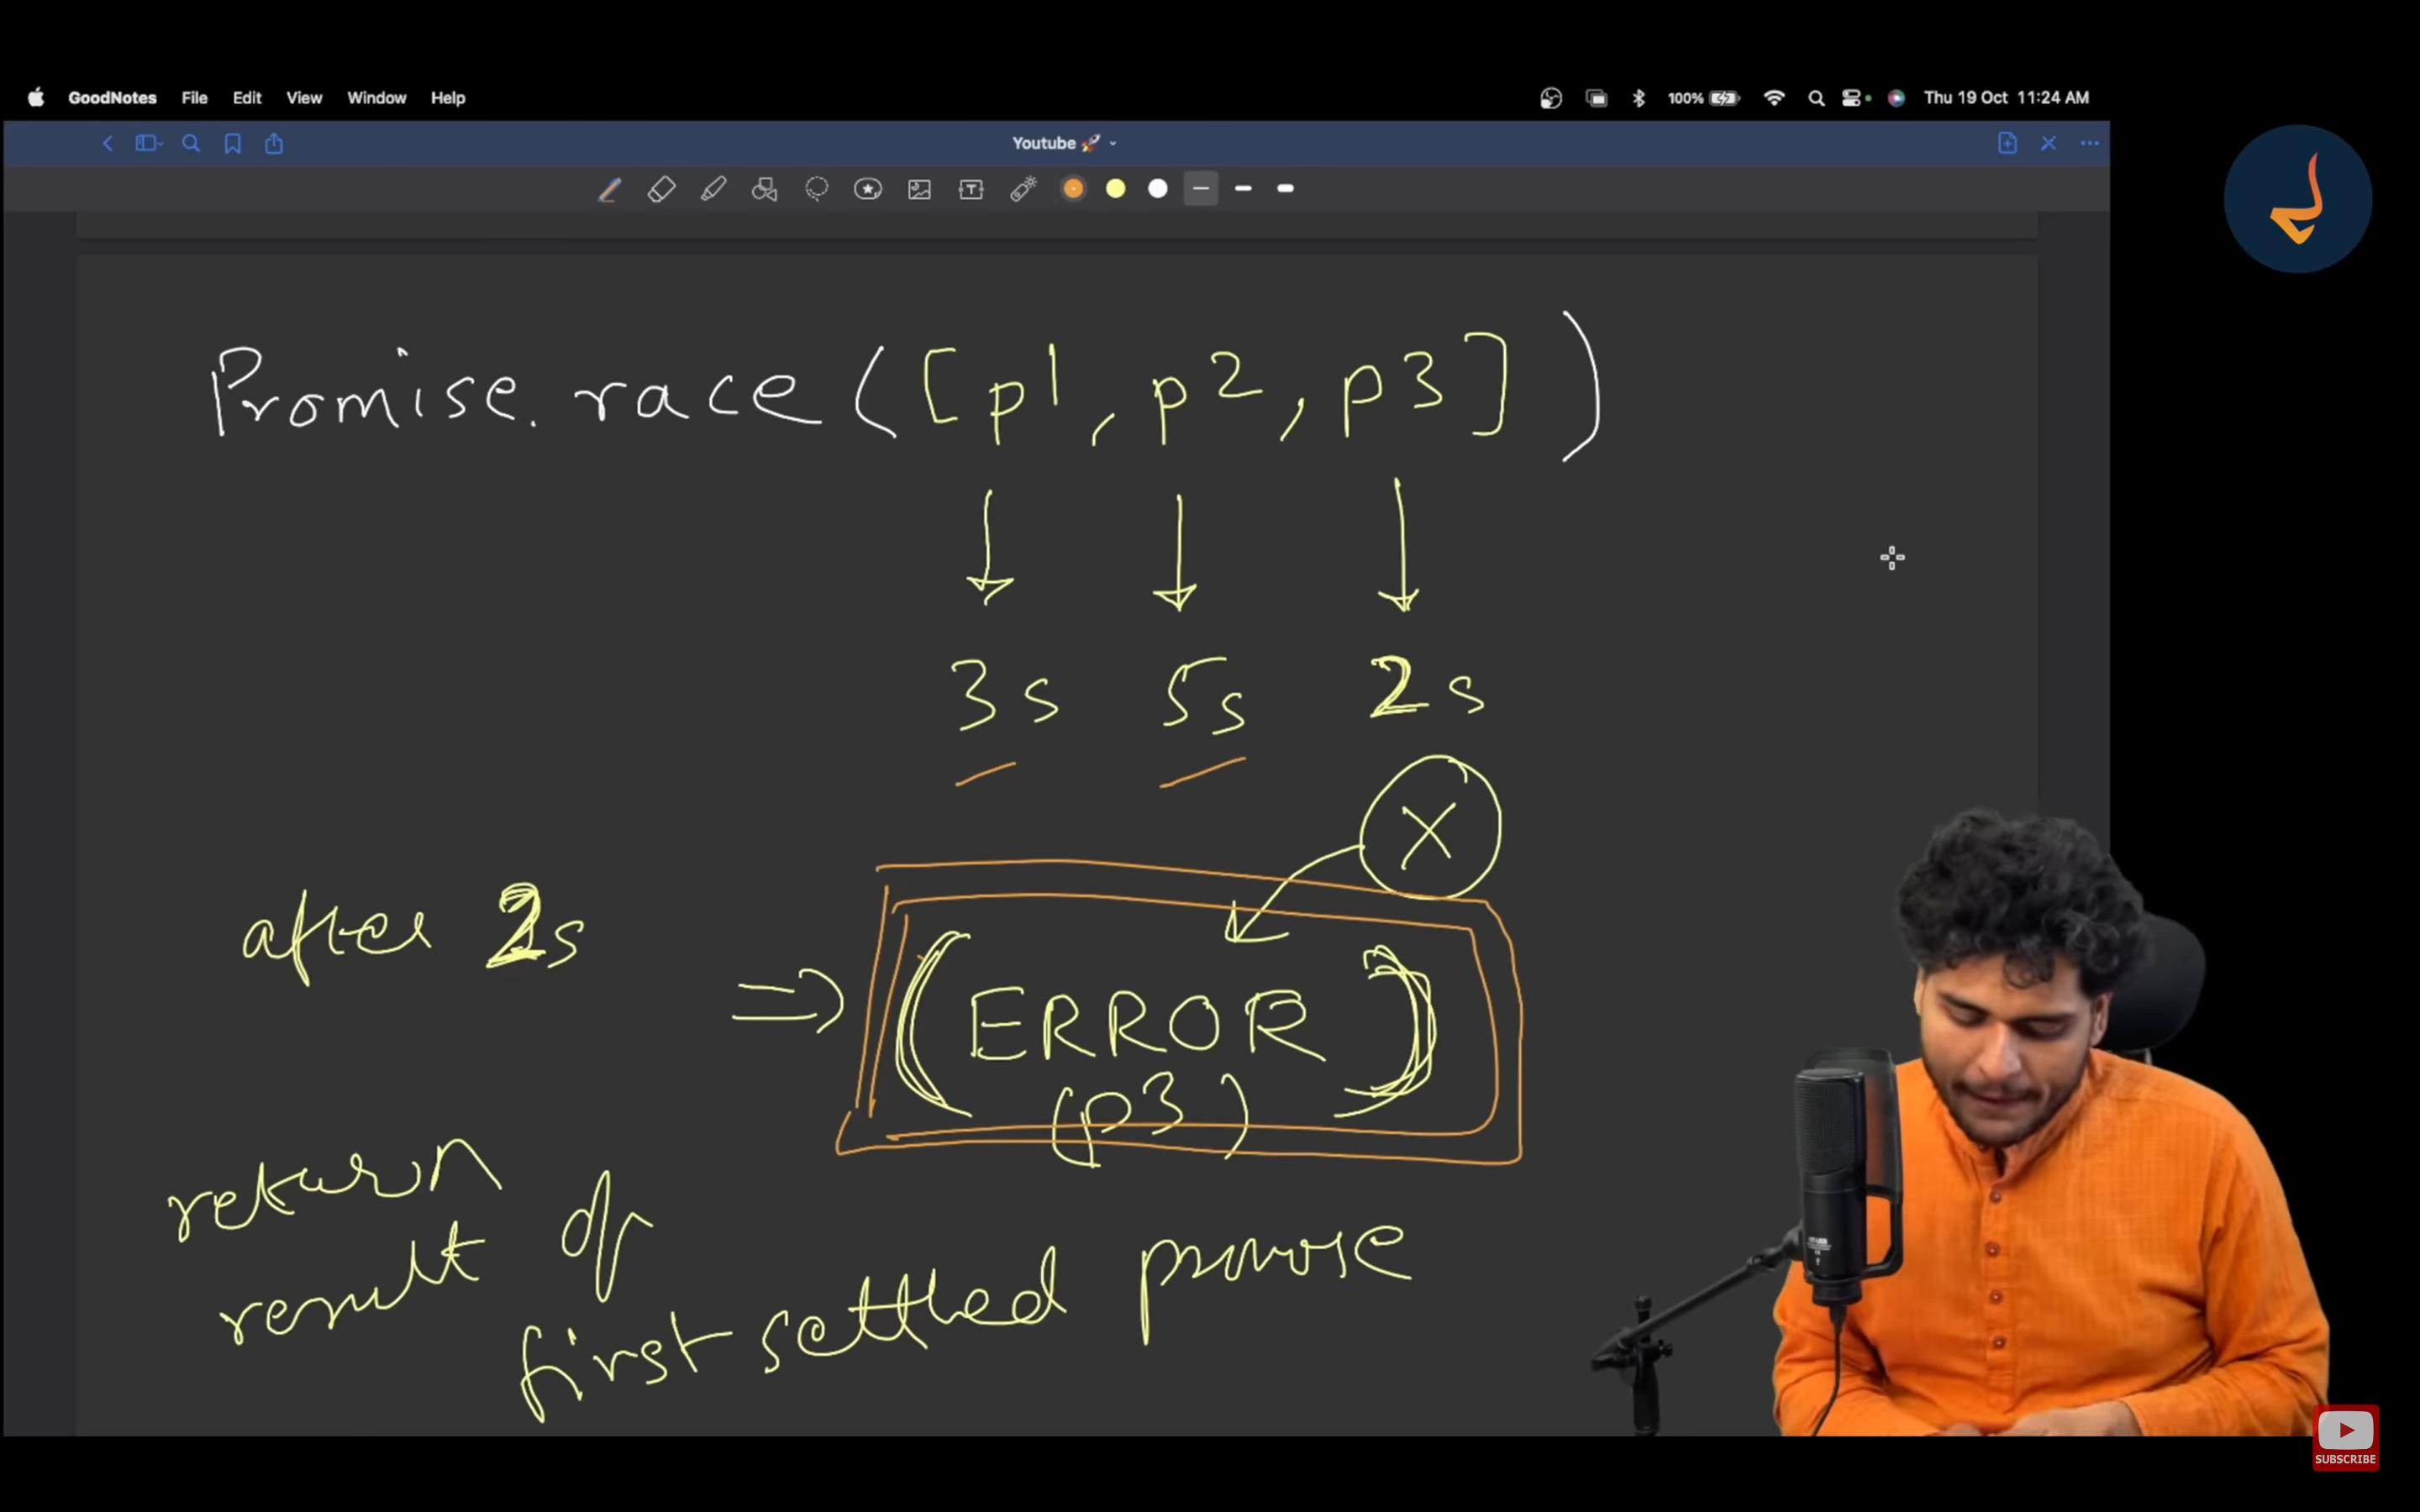 GoodNotes File Edit View Window Help 100% Thu 19 Oct 11:24 AM
Youtube 🚀
T
Promise.race([p1, p2, p3])
3s 5s 2s
X
after 2s
=> (ERROR)
(p3)
return
result of
first settled promise
SUBSCRIBE